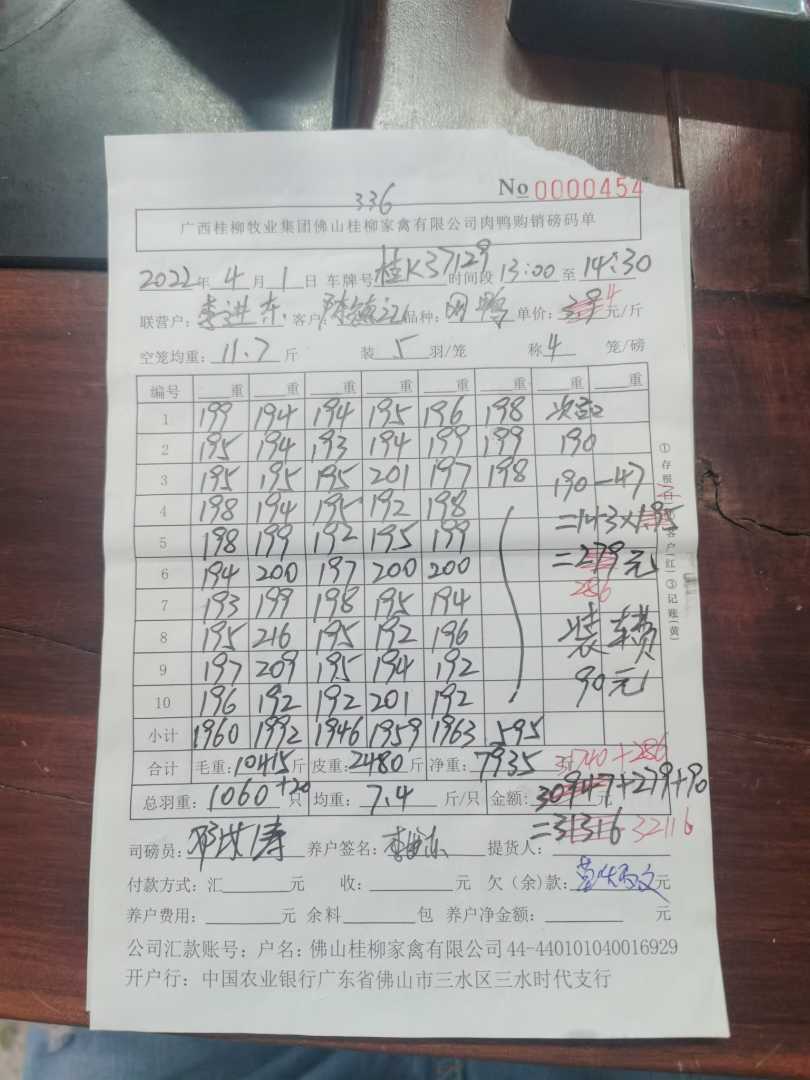 No 0000454
336
广西桂柳牧业集团佛山桂柳家禽有限公司肉鸭购销磅码单
2022年 4 月 1 日 车牌号 桂K37129 时间段 13:00 至 14:30
联营户: 李进东 客户: 品种: 肉鸭 单价: 3.9 4 元/斤
空笼均重: 11.7 斤 装 5 羽/笼 称 4 笼/磅
编号 重 重 重 重 重 重 重 重
1 199 194 194 195 196 198 次
2 195 194 193 194 199 199 190
3 195 195 195 201 197 198 190-47
4 198 194 195 192 198 =143×1.95
5 198 199 192 195 199
6 194 200 197 200 200 =279元
7 193 199 198 195 194 286
8 195 216 195 192 196 装车费
9 197 209 195 194 192 90元
10 196 192 192 201 192
小计 1960 1992 1946 1959 1963 595
合计 毛重: 10415 斤 皮重: 2480 斤 净重: 7935 31740+286
总羽重: 1060+20 只 均重: 7.4 斤/只 金额: 30947元+279+90
=31316 32116
司磅员: 养户签名: 提货人:
付款方式: 汇 元 收: 元 欠(余)款: 元
养户费用: 元 余料 包 养户净金额: 元
公司汇款账号: 户名: 佛山桂柳家禽有限公司 44-440101040016929
开户行: 中国农业银行广东省佛山市三水区三水时代支行
①存根(白)
客户(红)③记账(黄)